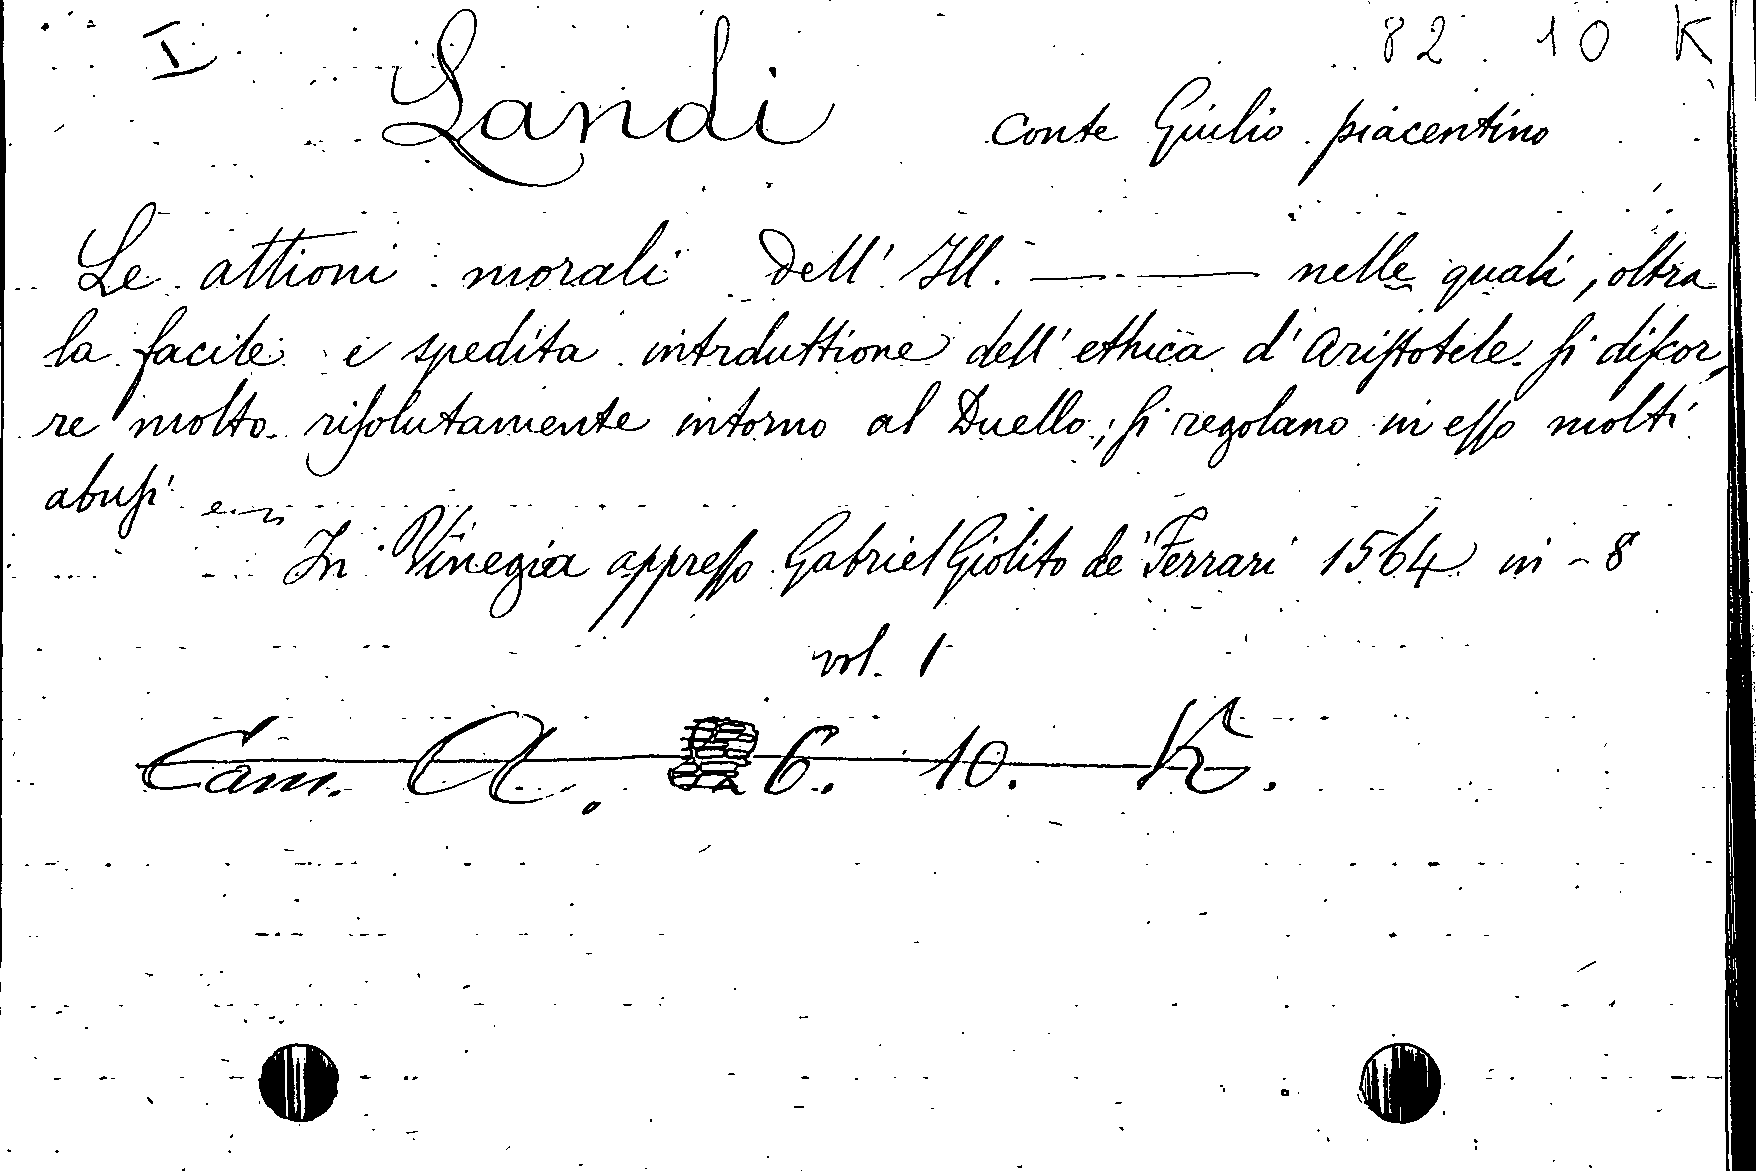 I 82 10 K
Landi conte Giulio piacentino
Le attioni morali dell' Ill. —— —— nelle quali, oltra
la facile e spedita intrduttione dell' ethica d' Aristotele si discor,
re molto risolutamente intorno al Duello; si regolano in esso molti
abusi
In Vinegia appresso Gabriel Giolito de' Ferrari 1564 in - 8
vol. 1
Cam. A. 6. 10. K.